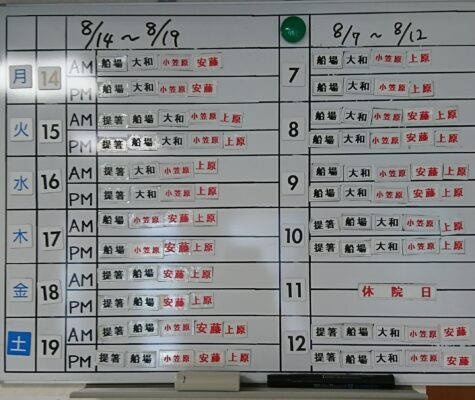 8/14～8/19 8/7～8/12
月 14 AM 船場 大和 小笠原 安藤 7 船場 大和 小笠原 上原
PM 船場 大和 小笠原 安藤 船場 大和 小笠原 上原
火 15 AM 提箸 船場 大和 小笠原 上原 8 船場 大和 小笠原 安藤 上原
PM 提箸 船場 大和 小笠原 上原 船場 大和 小笠原 安藤 上原
水 16 AM 提箸 大和 小笠原 上原 9 船場 大和 小笠原 安藤 上原
PM 提箸 大和 小笠原 上原 船場 大和 小笠原 安藤 上原
木 17 AM 船場 小笠原 安藤 上原 10 提箸 船場 大和 小笠原 上原
PM 船場 小笠原 安藤 上原 提箸 船場 大和 小笠原 上原
金 18 AM 提箸 船場 安藤 上原 11 休院日
PM 提箸 船場 安藤 上原
土 19 AM 提箸 船場 小笠原 安藤 上原 12 提箸 船場 大和 小笠原 安藤
PM 提箸 船場 小笠原 安藤 上原 提箸 船場 大和 小笠原 安藤